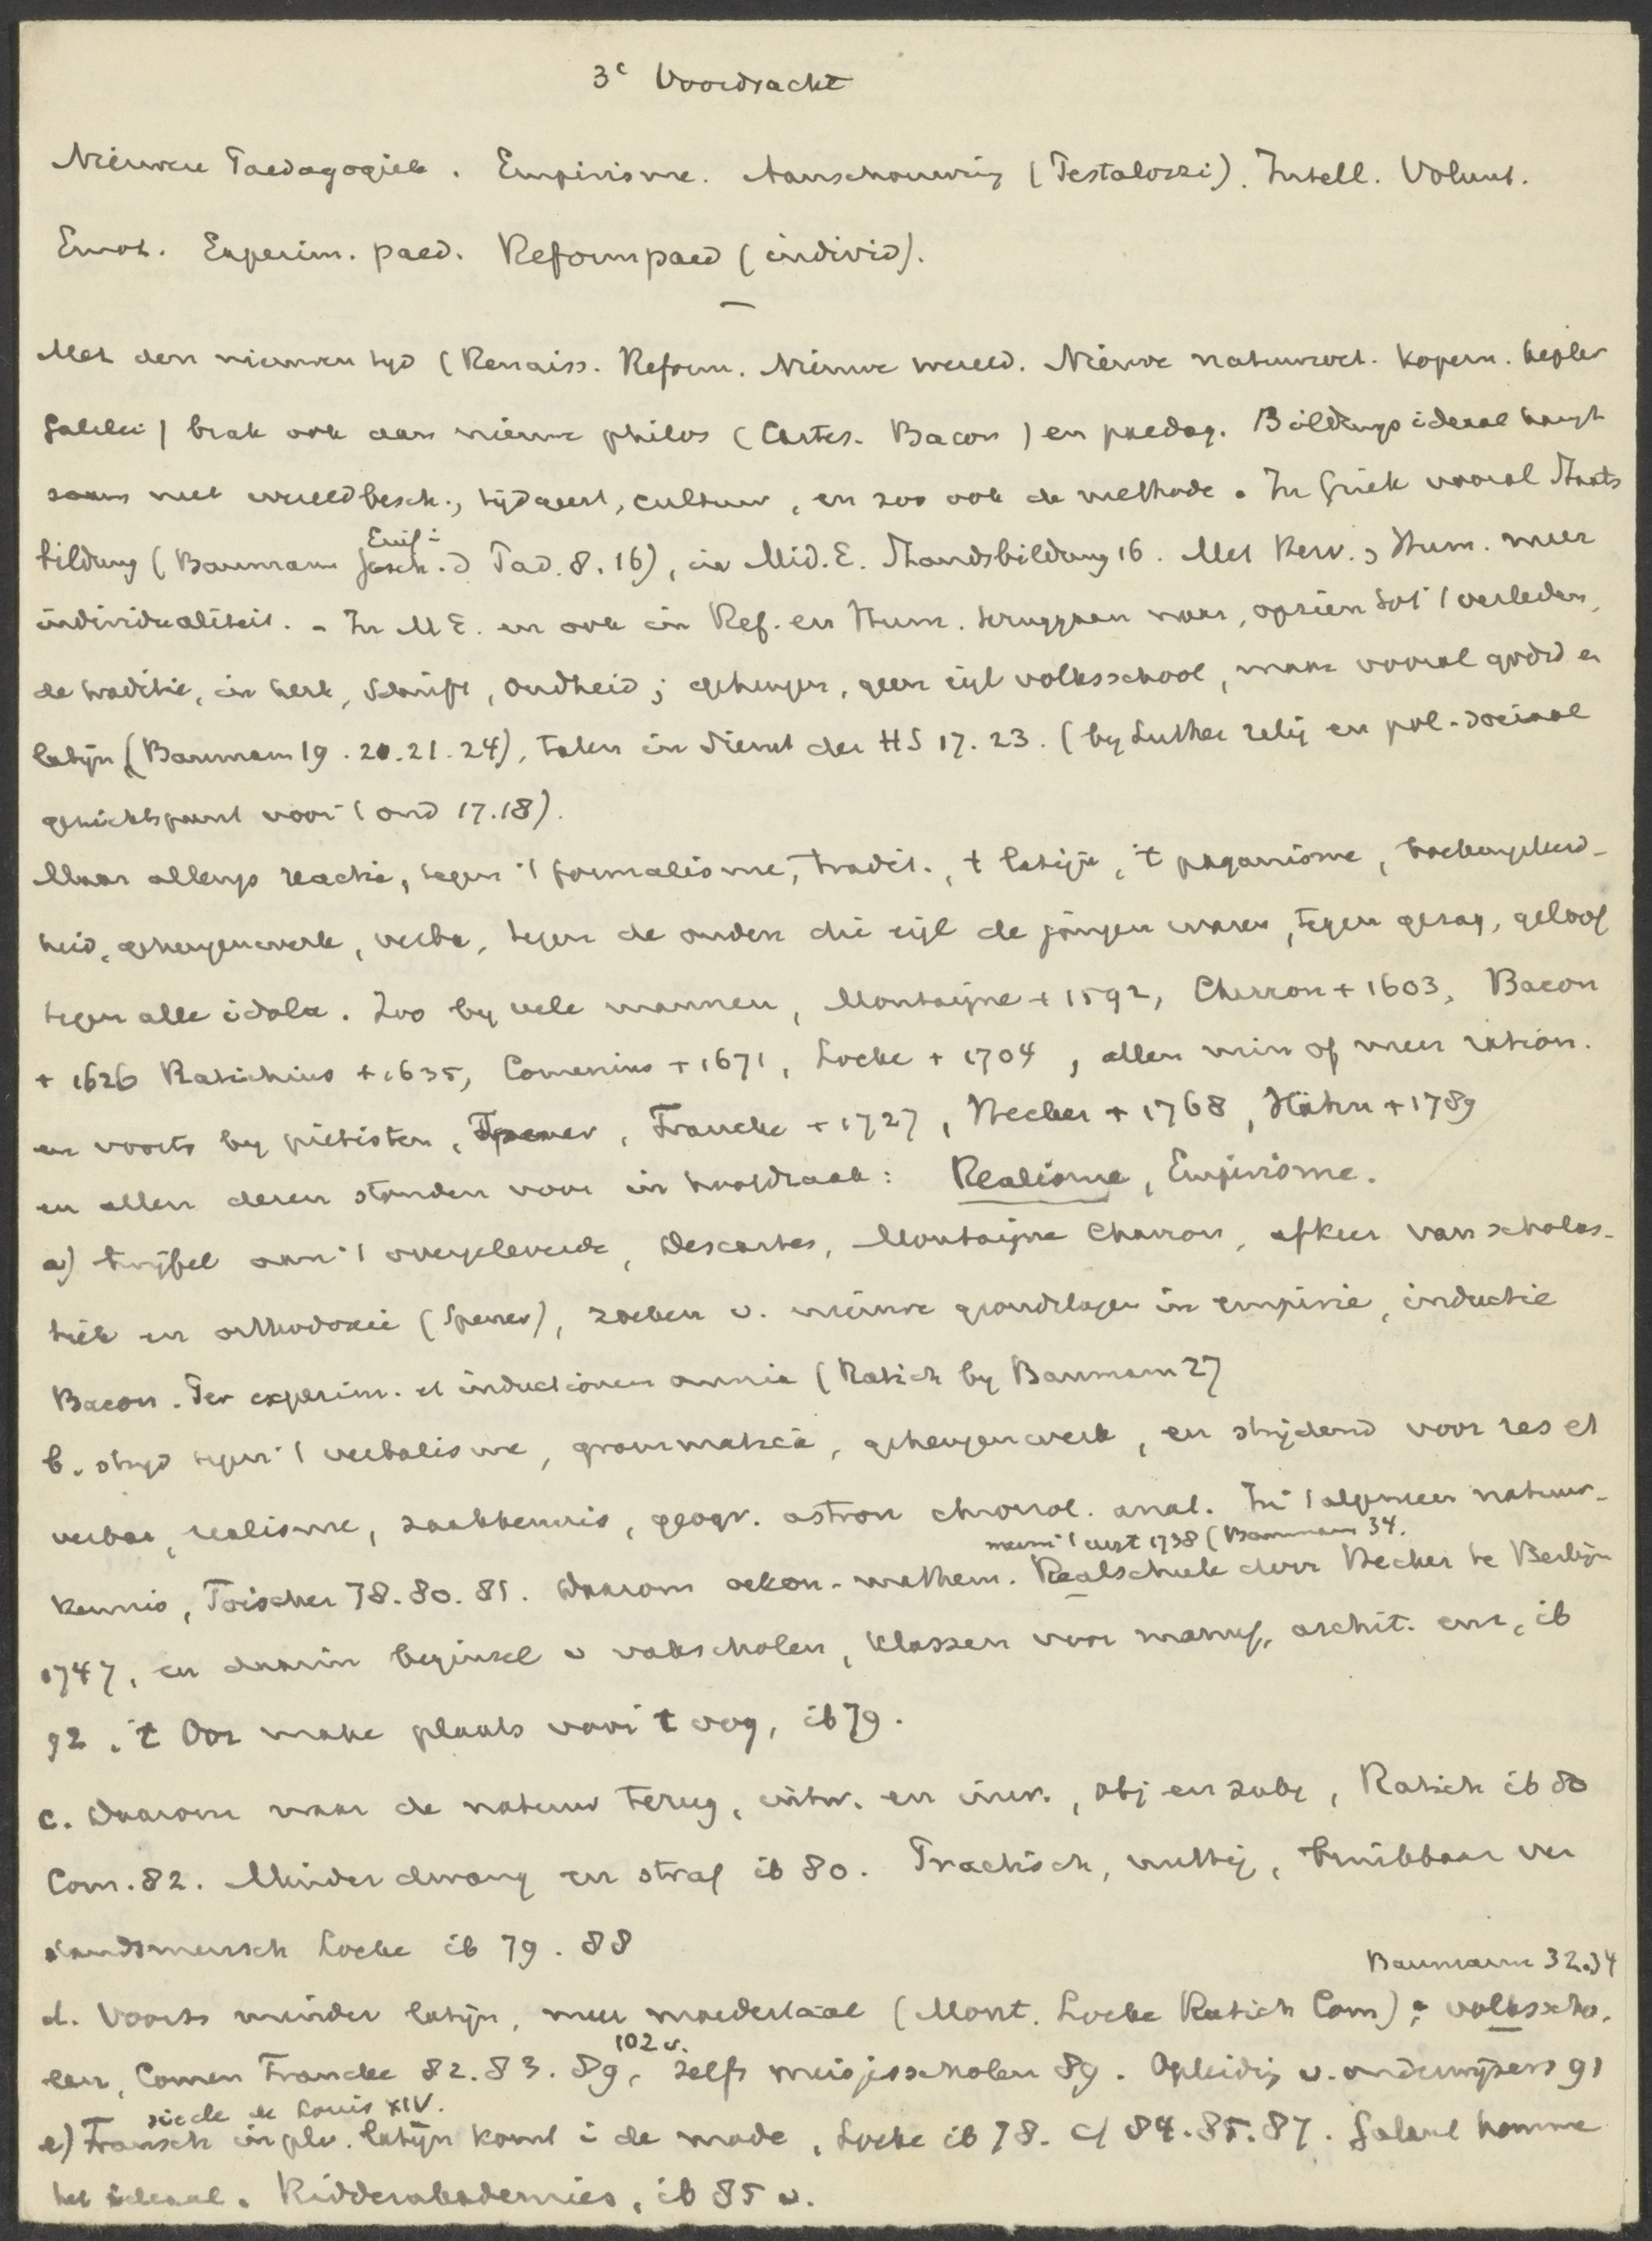 3e Voordracht
Nieuwere Paedagogiek. Empirisme. Aanschouwing (Pestalozzi). Intell. Volunt.
Emot. Experim. paed. Reformpaed (individ).
—
Met den nieuwen tyd (Renaiss. Reform. Nieuwe wereld. Nieuwe natuurwet. Kopern. Kepler
Galilei) brak ook aan nieuwe philos (Cartes. Bacon) en paedag. Bildungsideaal hangt
saam met wereldbesch., tijdgeest, cultuur, en zoo ook de methode. In Griek vooral Staats
bildung (Baumann Einf. i Gesch. d Päd. 8. 16), in Mid. E. Standsbildung 16. Met Herv., Hum. meer
individualiteit. - In ME. en ook in Ref. en Hum. teruggaan naar, opzien tot 't verleden,
de traditie, in kerk, Schrift, Oudheid; geheugen, geen eigl volksschool, maar vooral godsd en
latijn (Baumann 19. 20. 21. 24), talen in dienst der HS 17. 23. (by Luther relig en pol-sociaal
gezichtspunt voor 't ond 17.18).
Maar allengs reactie, tegen 't formalisme, tradit., 't latijn, 't paganisme, boekengeleerd-
heid, geheugenwerk, verba, tegen de ouden die eigl de jongen waren, tegen gezag, geloof
tegen alle idola. Zoo by vele mannen, Montaigne + 1592, Charron + 1603, Bacon
+ 1626 Ratichius + 1635, Comenius + 1671, Locke + 1704, allen min of meer ration.
en voorts by piëtisten, Spener, Francke + 1727, Hecker + 1768, Hähn + 1789
en allen dezen stonden voor in hoofdzaak: Realisme, Empirisme.
a) twijfel aan 't overgeleverde, Descartes, Montaigne Charron, afkeer van scholas-
tiek en orthodoxie (Spener), zoeken v. nieuwe grondslagen in empirie, inductie
Bacon. Per experim. et inductionem omnia (Ratich by Baumann 27
b. stryd tegen 't verbalisme, grammatica, geheugenwerk, en strijdend voor res et
verba, realisme, zaakkennis, geogr. astron chronol. anat. In 't algemeen natuur-
naam 't eerst 1738 (Baumann 34.
kennis, Toischer 78. 80. 81. Daarom oekon-mathem. Realschule door Hecker te Berlijn
1747, en daarin beginsel v vakscholen, klassen voor manuf, archit. enz, ib
92. 't Oor make plaats voor 't oog, ib 79.
c. Daarom naar de natuur terug, uitw. en inw., obj en subj, Ratich ib 80
Com. 82. Minder dwang en straf ib 80. Practisch, nuttig, bruikbaar ver
standsmensch Locke ib 79. 88
Baumann 32.34
d. Voorts minder latijn, meer moedertaal (Mont. Locke Ratich Com); volksscho-
len, Comen Francke 82. 83. 89, 102 v. zelfs meisjesscholen 89. Opleidig v. onderwijzers 91
siècle de Louis XIV.
e) Fransch in plv. latijn komt i de mode, Locke ib 78. cf 84. 85. 87. Galant homme
het ideaal. Ridderakademies, ib 85 v.